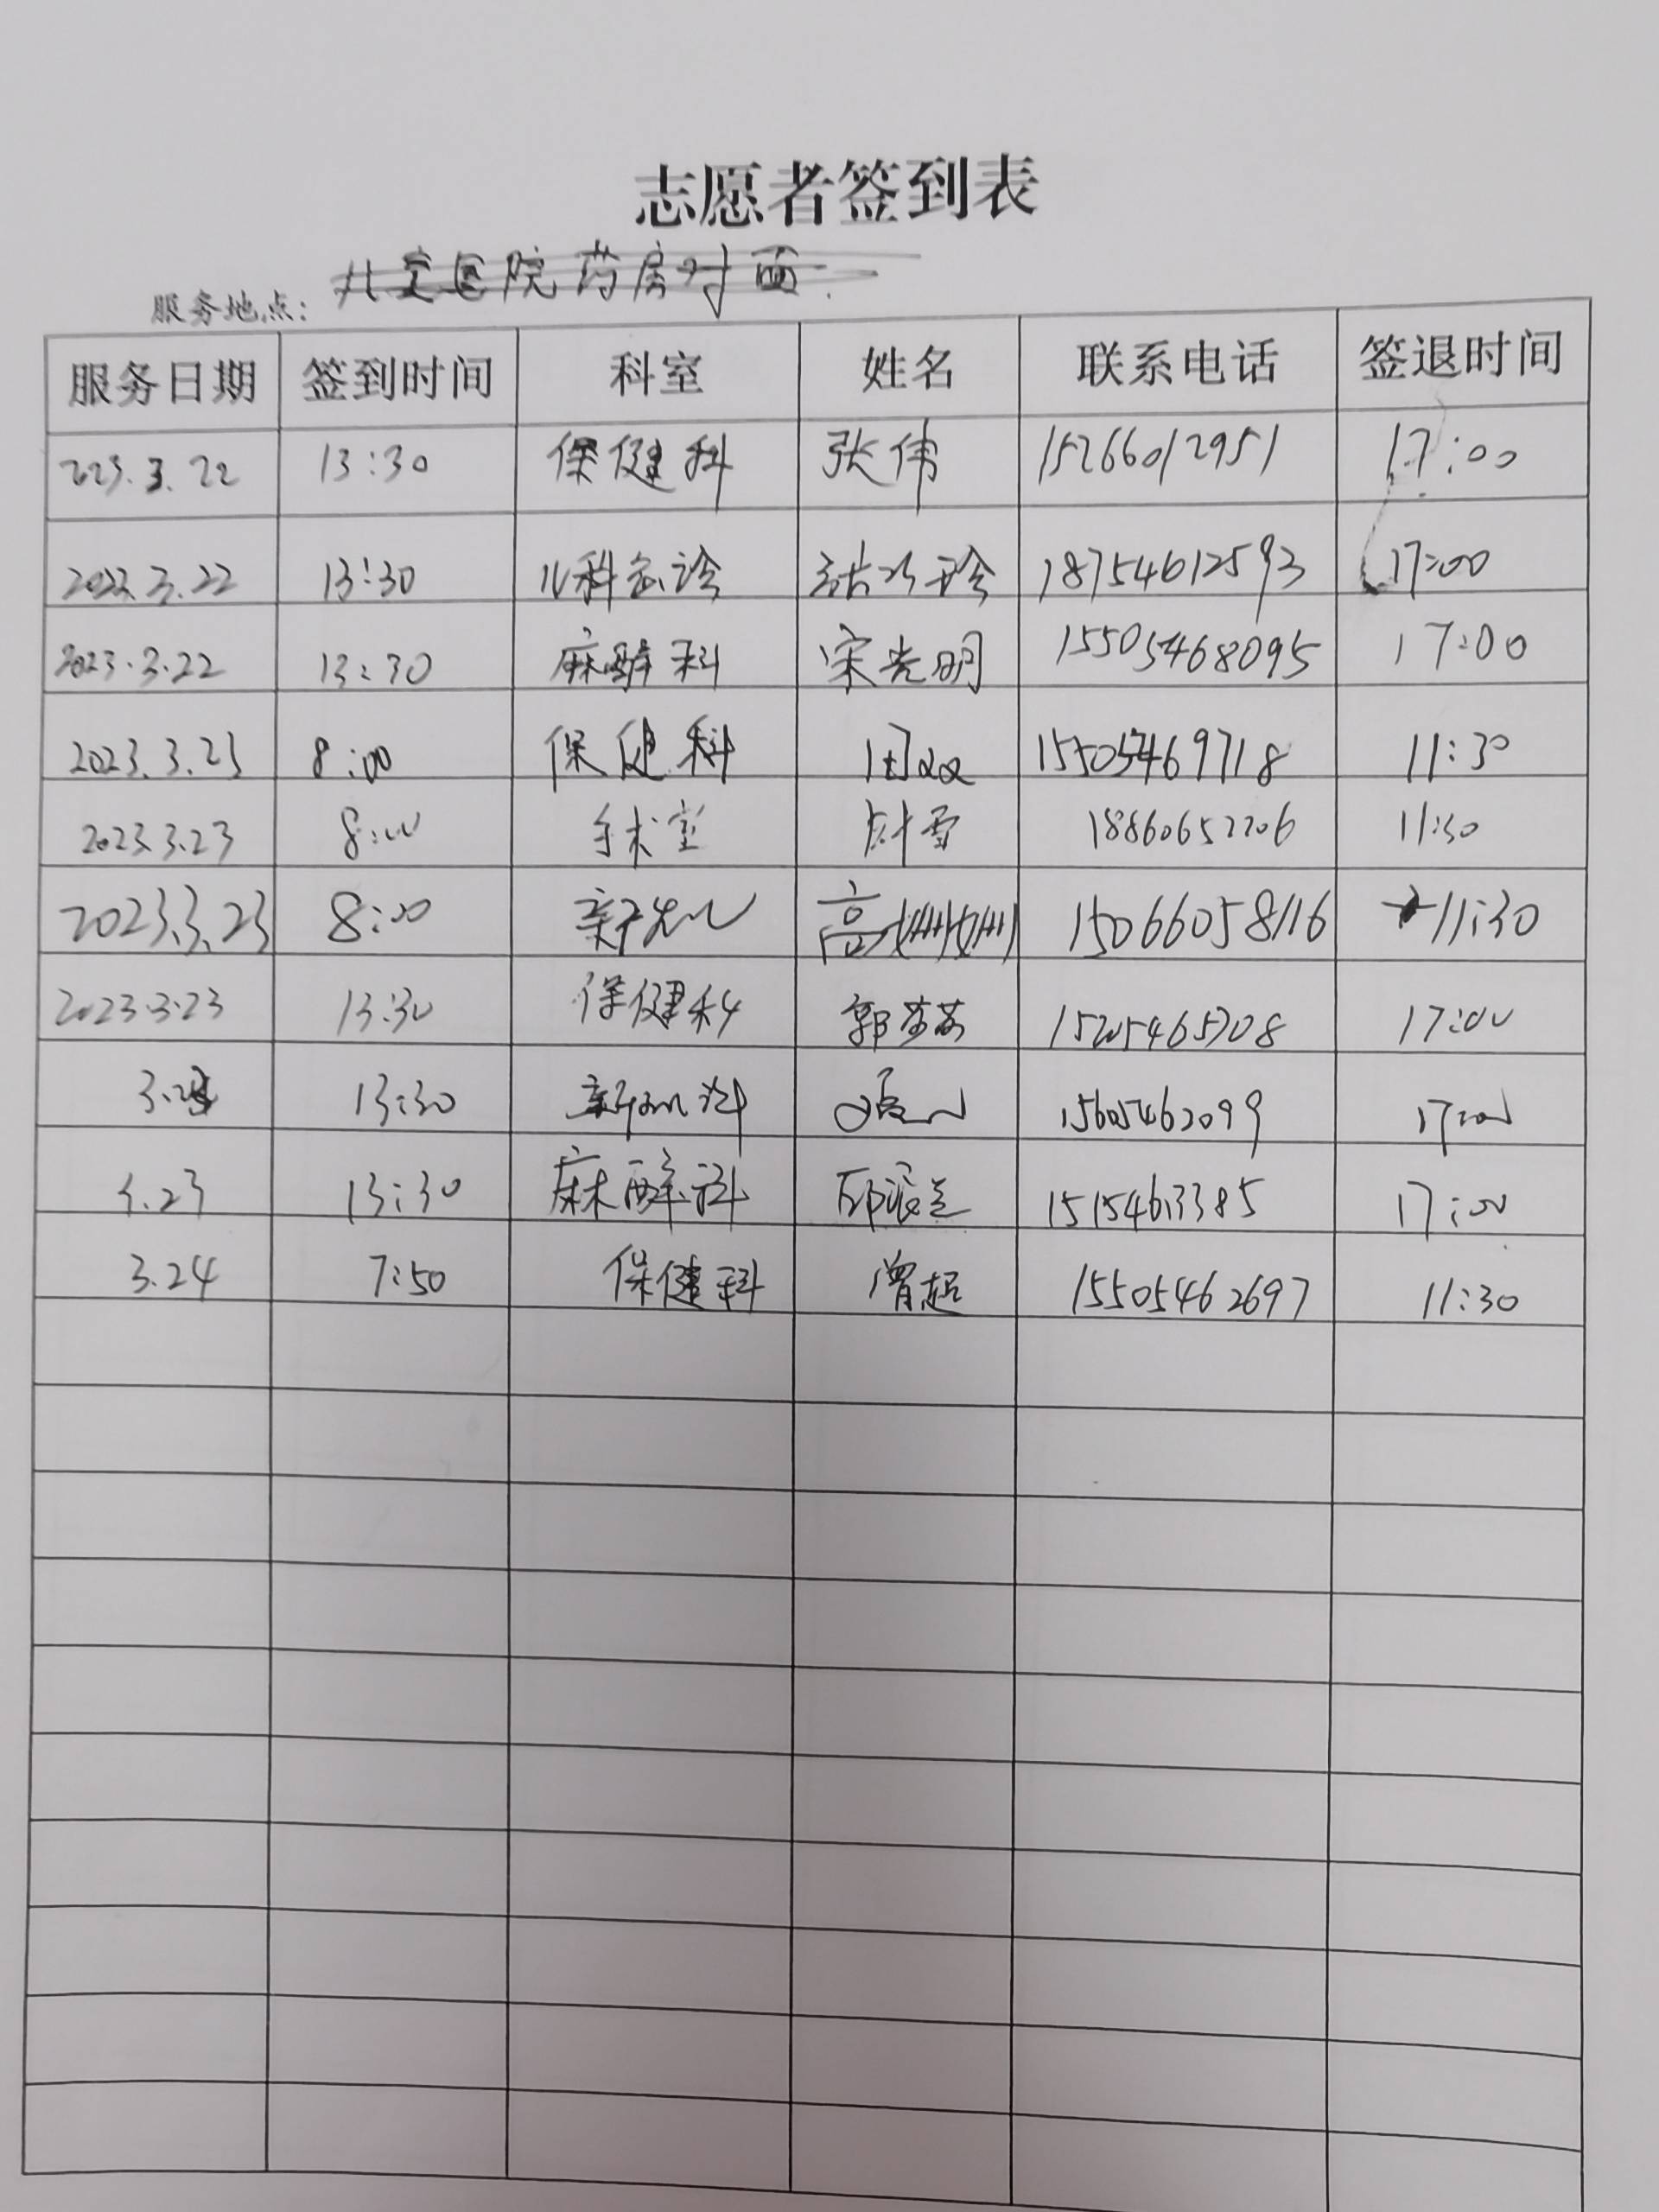 志愿者签到表
服务地点: 儿童医院药房对面
服务日期 签到时间 科室 姓名 联系电话 签退时间
2023.3.22 13:30 保健科 张伟 15266012951 17:00
2023.3.22 13:30 儿科急诊 18754612593 17:00
2023.3.22 13:30 麻醉科 宋光明 15505468095 17:00
2023.3.23 8:00 保健科 田双 15505469718 11:30
2023.3.23 8:00 手术室 18860652206 11:30
2023.3.23 8:00 新生儿 高姗姗 15066058116 11:30
2023.3.23 13:30 保健科 郭莎莎 17:00
3.23 13:30 15605462099 17:00
3.23 13:30 麻醉科 15154613385 17:00
3.24 7:50 保健科 曾超 15505462697 11:30